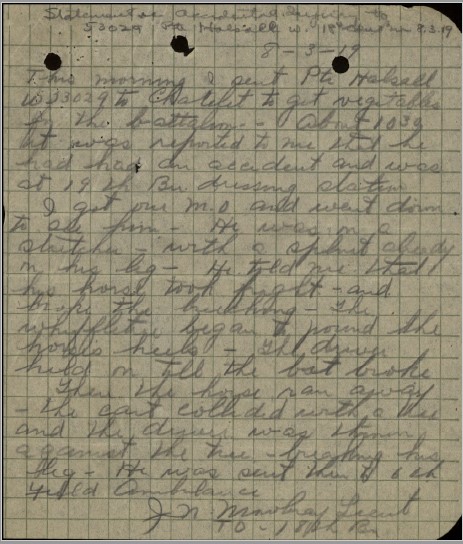 Statement on accidental injuries to
53029 Pte Halsall W. 18th 8.3.19
8-3-19
This morning I sent Pte Halsall
W 53029 to Chatelet to get vegetables
for the battalion - About 1030
it was reported to me that he
had had an accident and was
at 19th Bn dressing station
I got our M.O and went down
to see him - He was on a
stretcher - with a splint already
on his leg - He told me that
his horse took fright - and
broke the breeching - The
whiffletree began to pound the
horse's heels - The driver
held on till the bit broke
Then the horse ran away
- the cart collided with a tree
and the driver was thrown
against the tree - breaking his
leg - He was sent then to 6th
Field Ambulance
J N Lieut
TO - 18th Bn